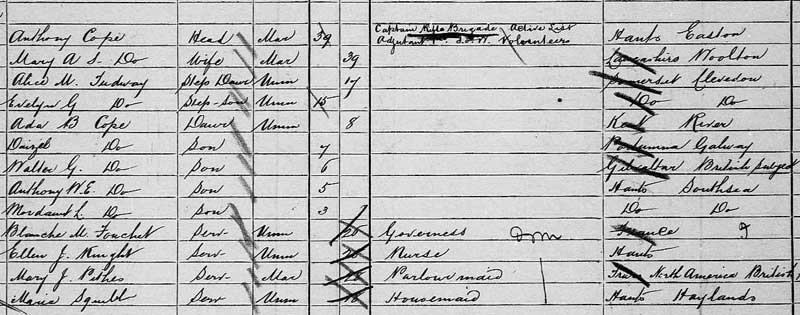 Captain Rifle Brigade Active List
Anthony Cope Head Mar 39 Adjutant Volunteers Hants Easton
Mary A S. Do Wife Mar 39 Lancashire Woolton
Alice M. Tudway Step Daur Unm 17 Somerset Clevedon
Evelyn G Do Step-Son Unm 15 Do Do
Ada B Cope Daur Unm 8 Kent River
Do Son 7 Portumna Galway
Walter G. Do Son 6 Gibraltar British Subject
Anthony W.E. Do Son 5 Hants Southsea
Mordaunt L. Do Son 3 Do Do
Blanche M. Fouchet Serv- Unm Governess France
Ellen J. Knight Serv- Unm Nurse Hants
Mary J. Pithes Serv- Mar Parlourmaid North America British
Marie Squibb Serv Unm Housemaid Hants Haylands